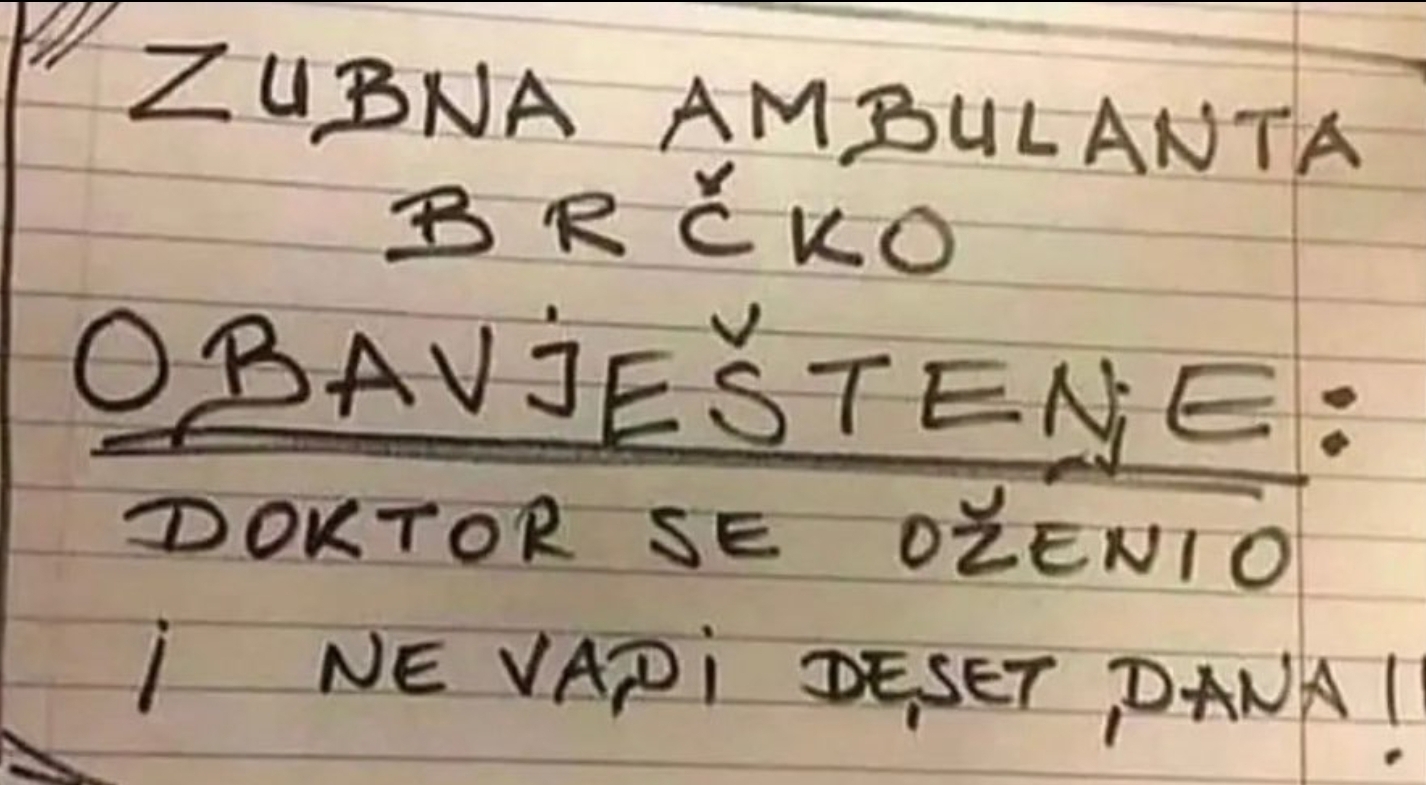 ZUBNA AMBULANTA
BRČKO
OBAVJEŠTENJE:
DOKTOR SE OŽENIO
i NE VADi DESET DANA!!